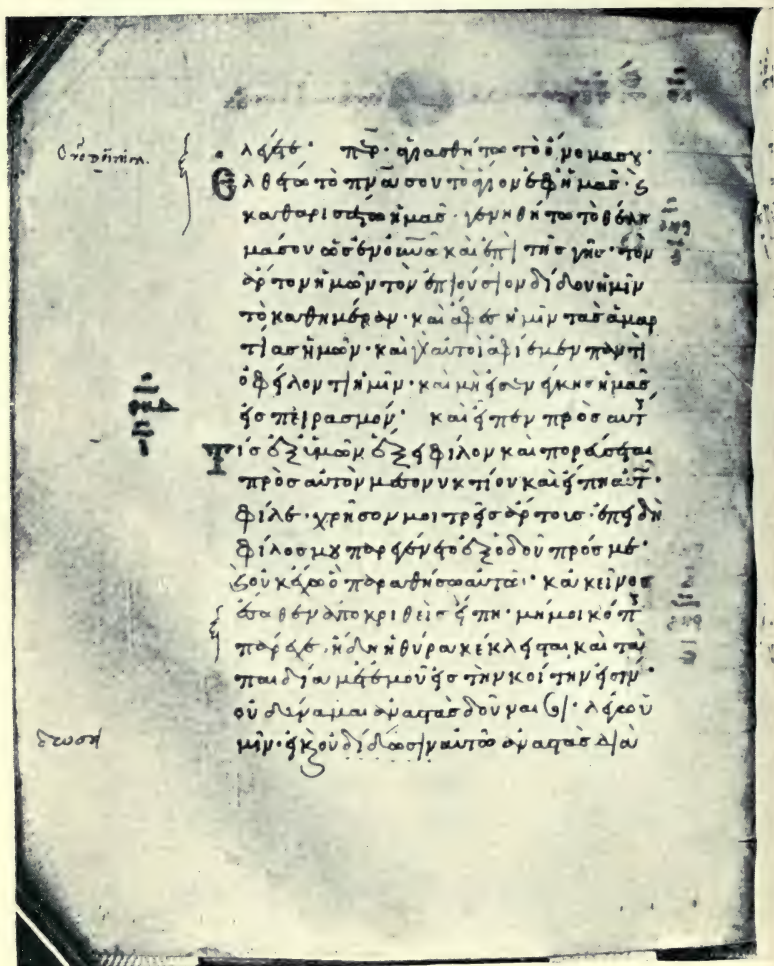 λέγετε· περ· ἁγιασθήτω τὸ ὄνομά σου·
Ἐλθέτω τὸ πνα σου τὸ ἅγιον ἐφ ἡμᾶς· κ
καθαρισάτω ἡμᾶς· γενηθήτω τὸ θέλη
μα σου ὡς ἐν οὐνω καὶ ἐπὶ τῆς γῆς· τὸν
ἄρτον ἡμῶν τὸν ἐπιούσιον δίδου ἡμῖν
τὸ καθημέραν· καὶ ἄφες ἡμῖν τὰς ἁμαρ
τίας ἡμῶν· καὶ γὰρ αὐτοὶ ἀφίεμεν παντὶ
ὀφείλοντι ἡμῖν· καὶ μὴ εἰσενείκης ἡμᾶς
εἰς πειρασμόν· καὶ εἶπεν πρὸς αὐτ
Τίς ἐξ ὑμῶν ἕξει φίλον καὶ πορεύσεται
πρὸς αὐτὸν μεσονυκτίου καὶ εἴπη αὐτ·
φίλε· χρῆσόν μοι τρεῖς ἄρτους· ἐπειδὴ
φίλος μου παρεγένετο ἐξ ὁδοῦ πρός με·
κ οὐκ ἔχω ὃ παραθήσω αὐτῶ· κἀκεῖνος
ἔσωθεν ἀποκριθεὶς εἴπη· μή μοι κόπ
πάρεχε· ἤδη ἡ θύρα κέκλεισται καὶ τὰ
παιδία μετ ἐμοῦ εἰς τὴν κοίτην εἰσίν·
οὐ δύναμαι ἀναστὰς δοῦναι σοι· λέγω ὑ
μῖν· εἰ κ οὐ δίδωσιν αὐτῶ ἀναστὰς διὰ
δωση